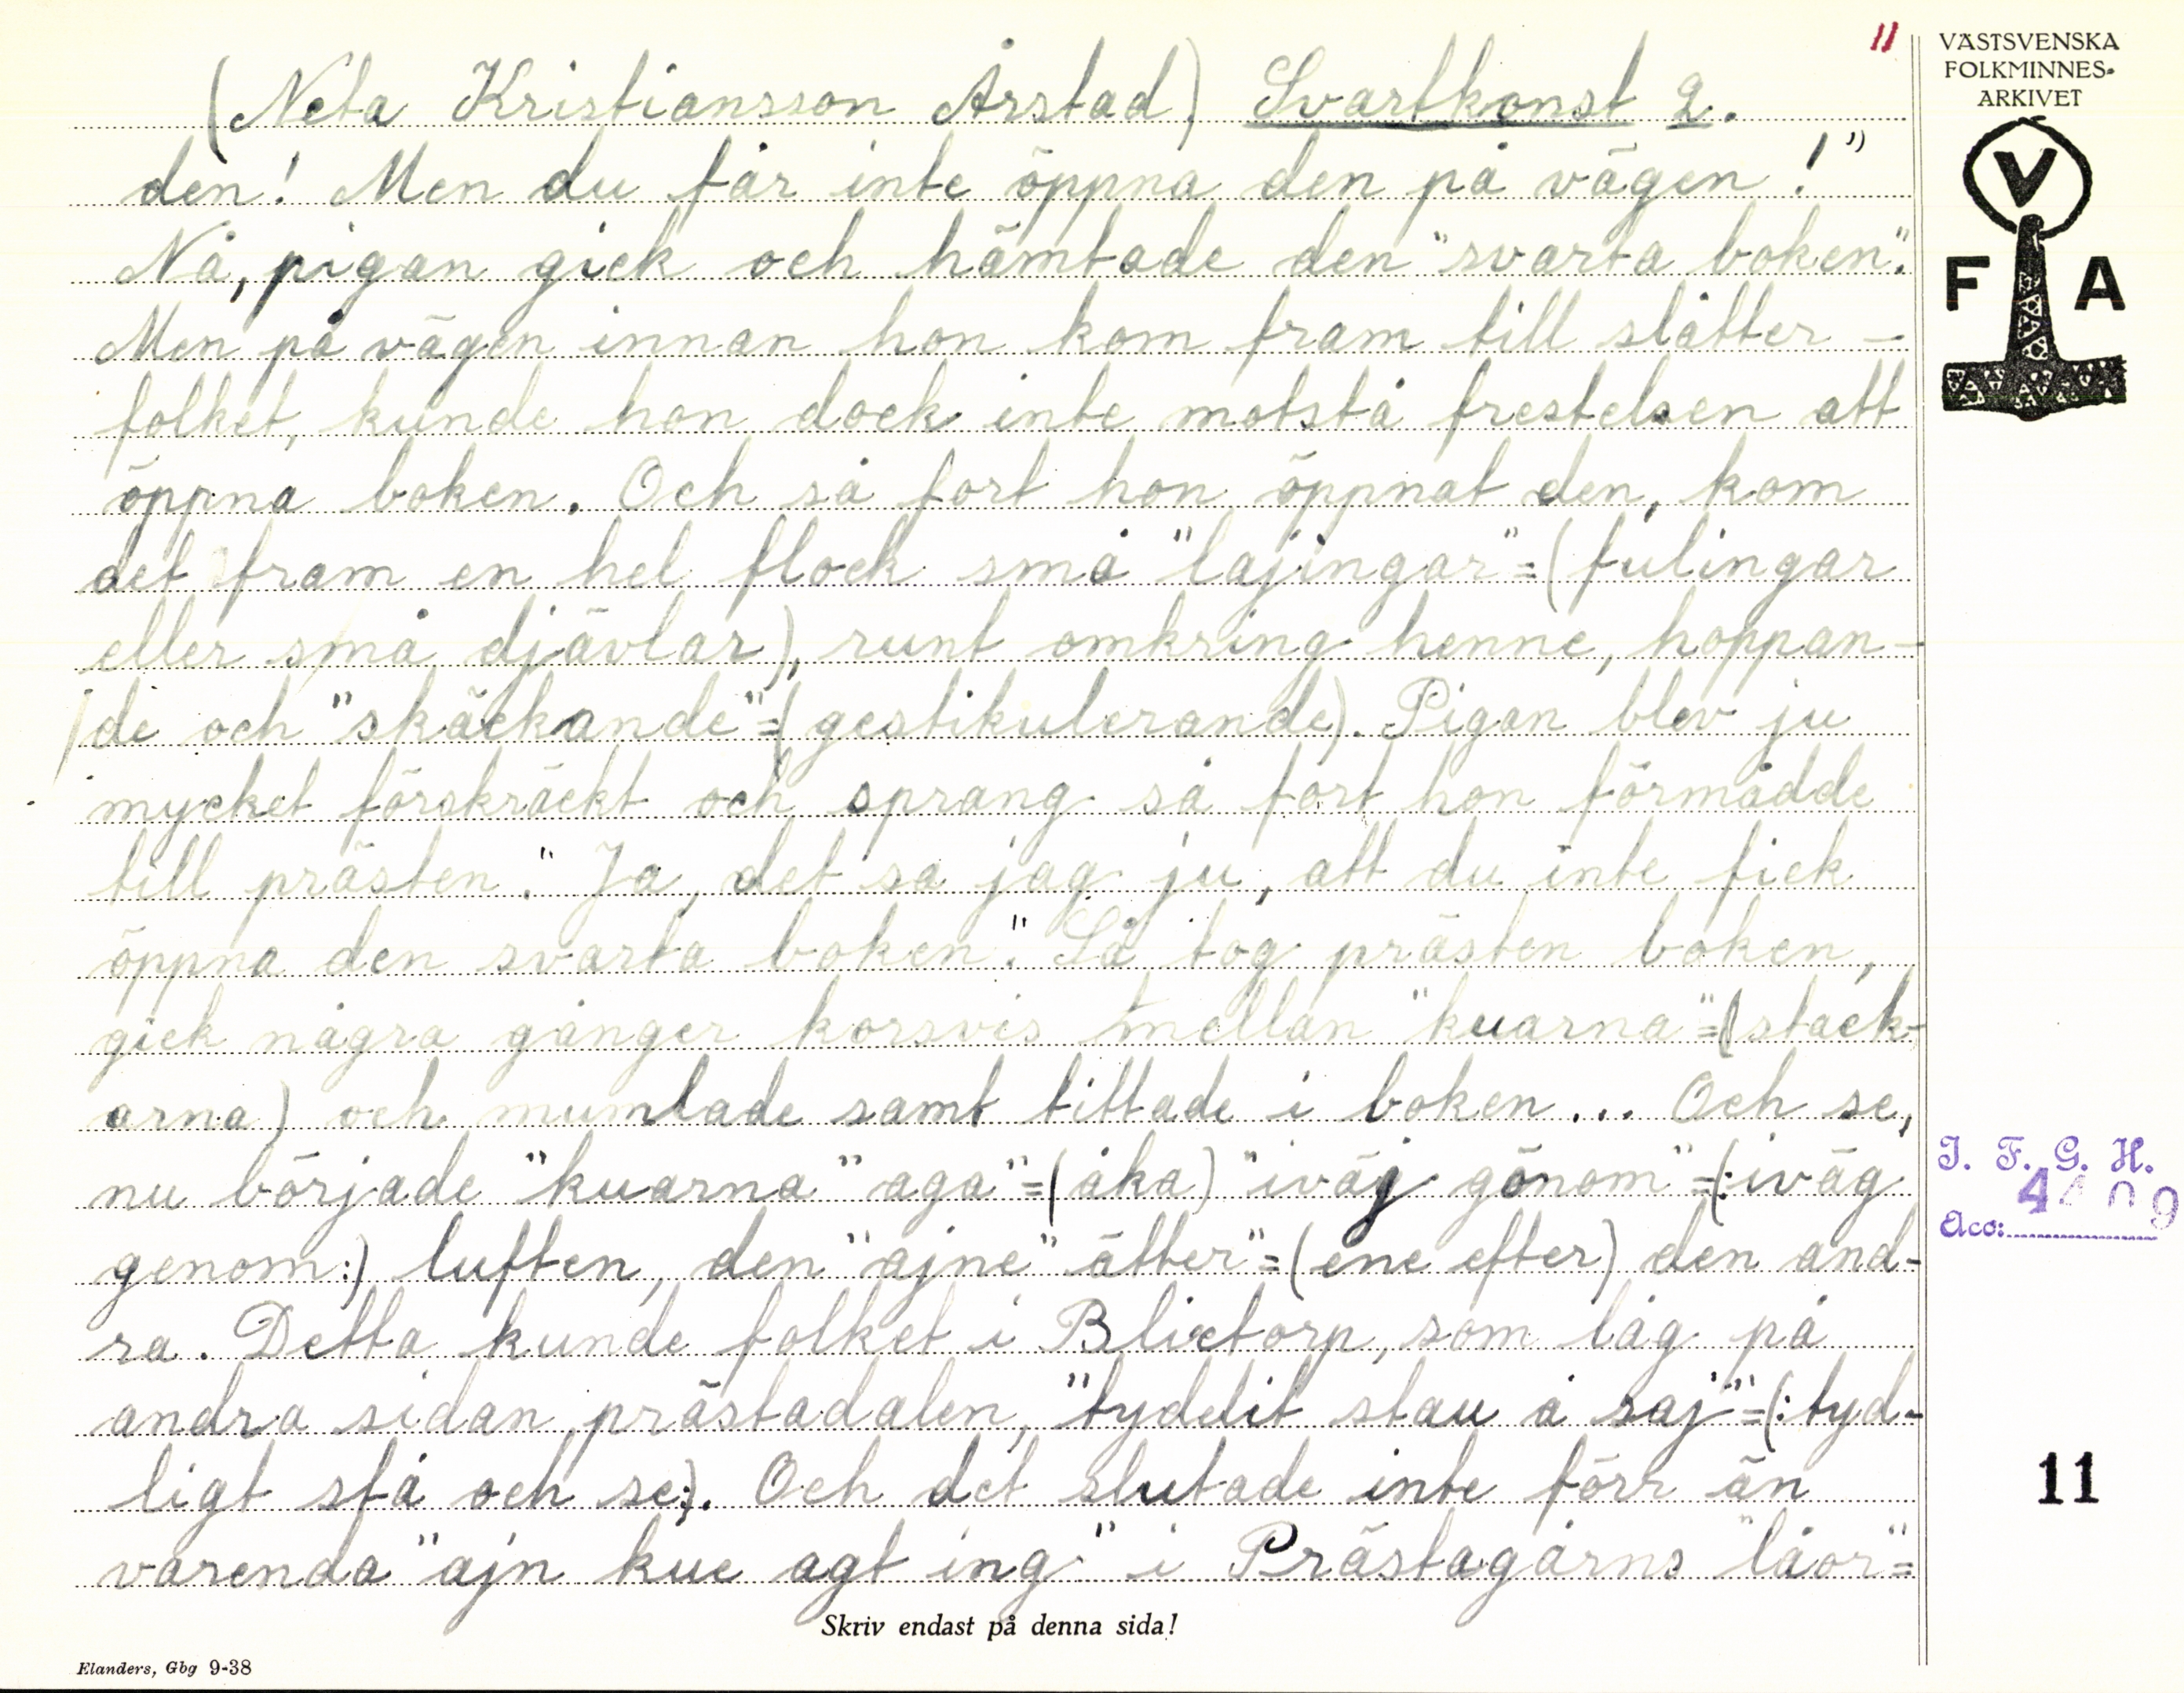 11
VÄSTSVENSKA
FOLKMINNES-
ARKIVET
V
F A
(Neta Kristiansson Årstad) Svartkonst 2.
den! Men du får inte öppna den på vägen!"
Nå, pigan gick och hämtade den "svarta boken".
Men på vägen innan hon kom fram till slåtter-
folket, kunde hon dock inte motstå frestelsen att
öppna boken. Och så fort hon öppnat den, kom
det fram en hel flock små "lajingar"=(fulingar
eller små djävlar), runt omkring henne, hoppan-
de och "skäckande"=(gestikulerande). Pigan blev ju
mycket förskräckt och sprang så fort hon förmådde
till prästen." Ja, det sa jag ju, att du inte fick
öppna den svarta boken". Så tog prästen boken,
gick några gånger korsvis mellan "kuarna"=(stack-
arna) och mumlade samt tittade i boken... Och se,
nu började "kuarna" aga"=(åka) "iväj gönom"=(:iväg
genom:) luften, den "ajne" ätter"=(ene efter) den and-
ra. Detta kunde folket i Blixtorp, som låg på
andra sidan prästadalen, "tydelit stau å saj"=(:tyd-
ligt stå och se:). Och det slutade inte förr än
varenda "ajn kue agt ing" i Prästagårns "låor"=
Skriv endast på denna sida!
Elanders, Gbg 9-38
I. F. G. H.
4409
Acc:
11